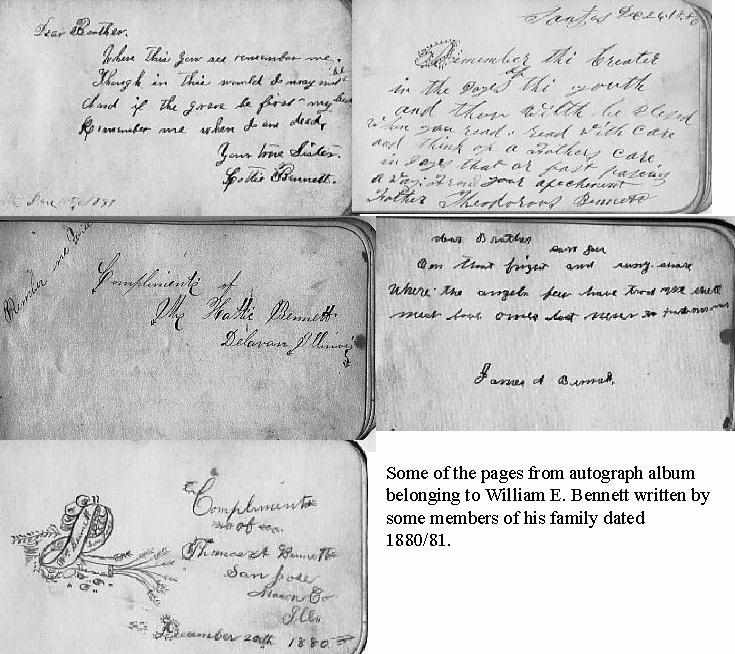 Dear Brother.
When this you see remember me.
Though in this world we may not
the grave be first my bed
Remember me when I am dead,
Your true Sister.
Hottie Bennett.
1881
Dec 24, 1880
Remember the Creater
in the days of thi youth
and thou wilth be blesed
when you read. read with care
and think of a Fathers care
in days that ar past
away. From your
Father Theodorous Bennett
Remember me
Compliments of
Mr Hattie Bennett
Delavan, Illinois
dear Brother
On that bright and
Where the angels feet have trod we shall
meet loved ones lost never to part
James A Bennett.
Compliments
of
Thomas A Bennett
San Jose
Mason Co
Ills.
December 20th 1880
Some of the pages from autograph album
belonging to William E. Bennett written by
some members of his family dated
1880/81.